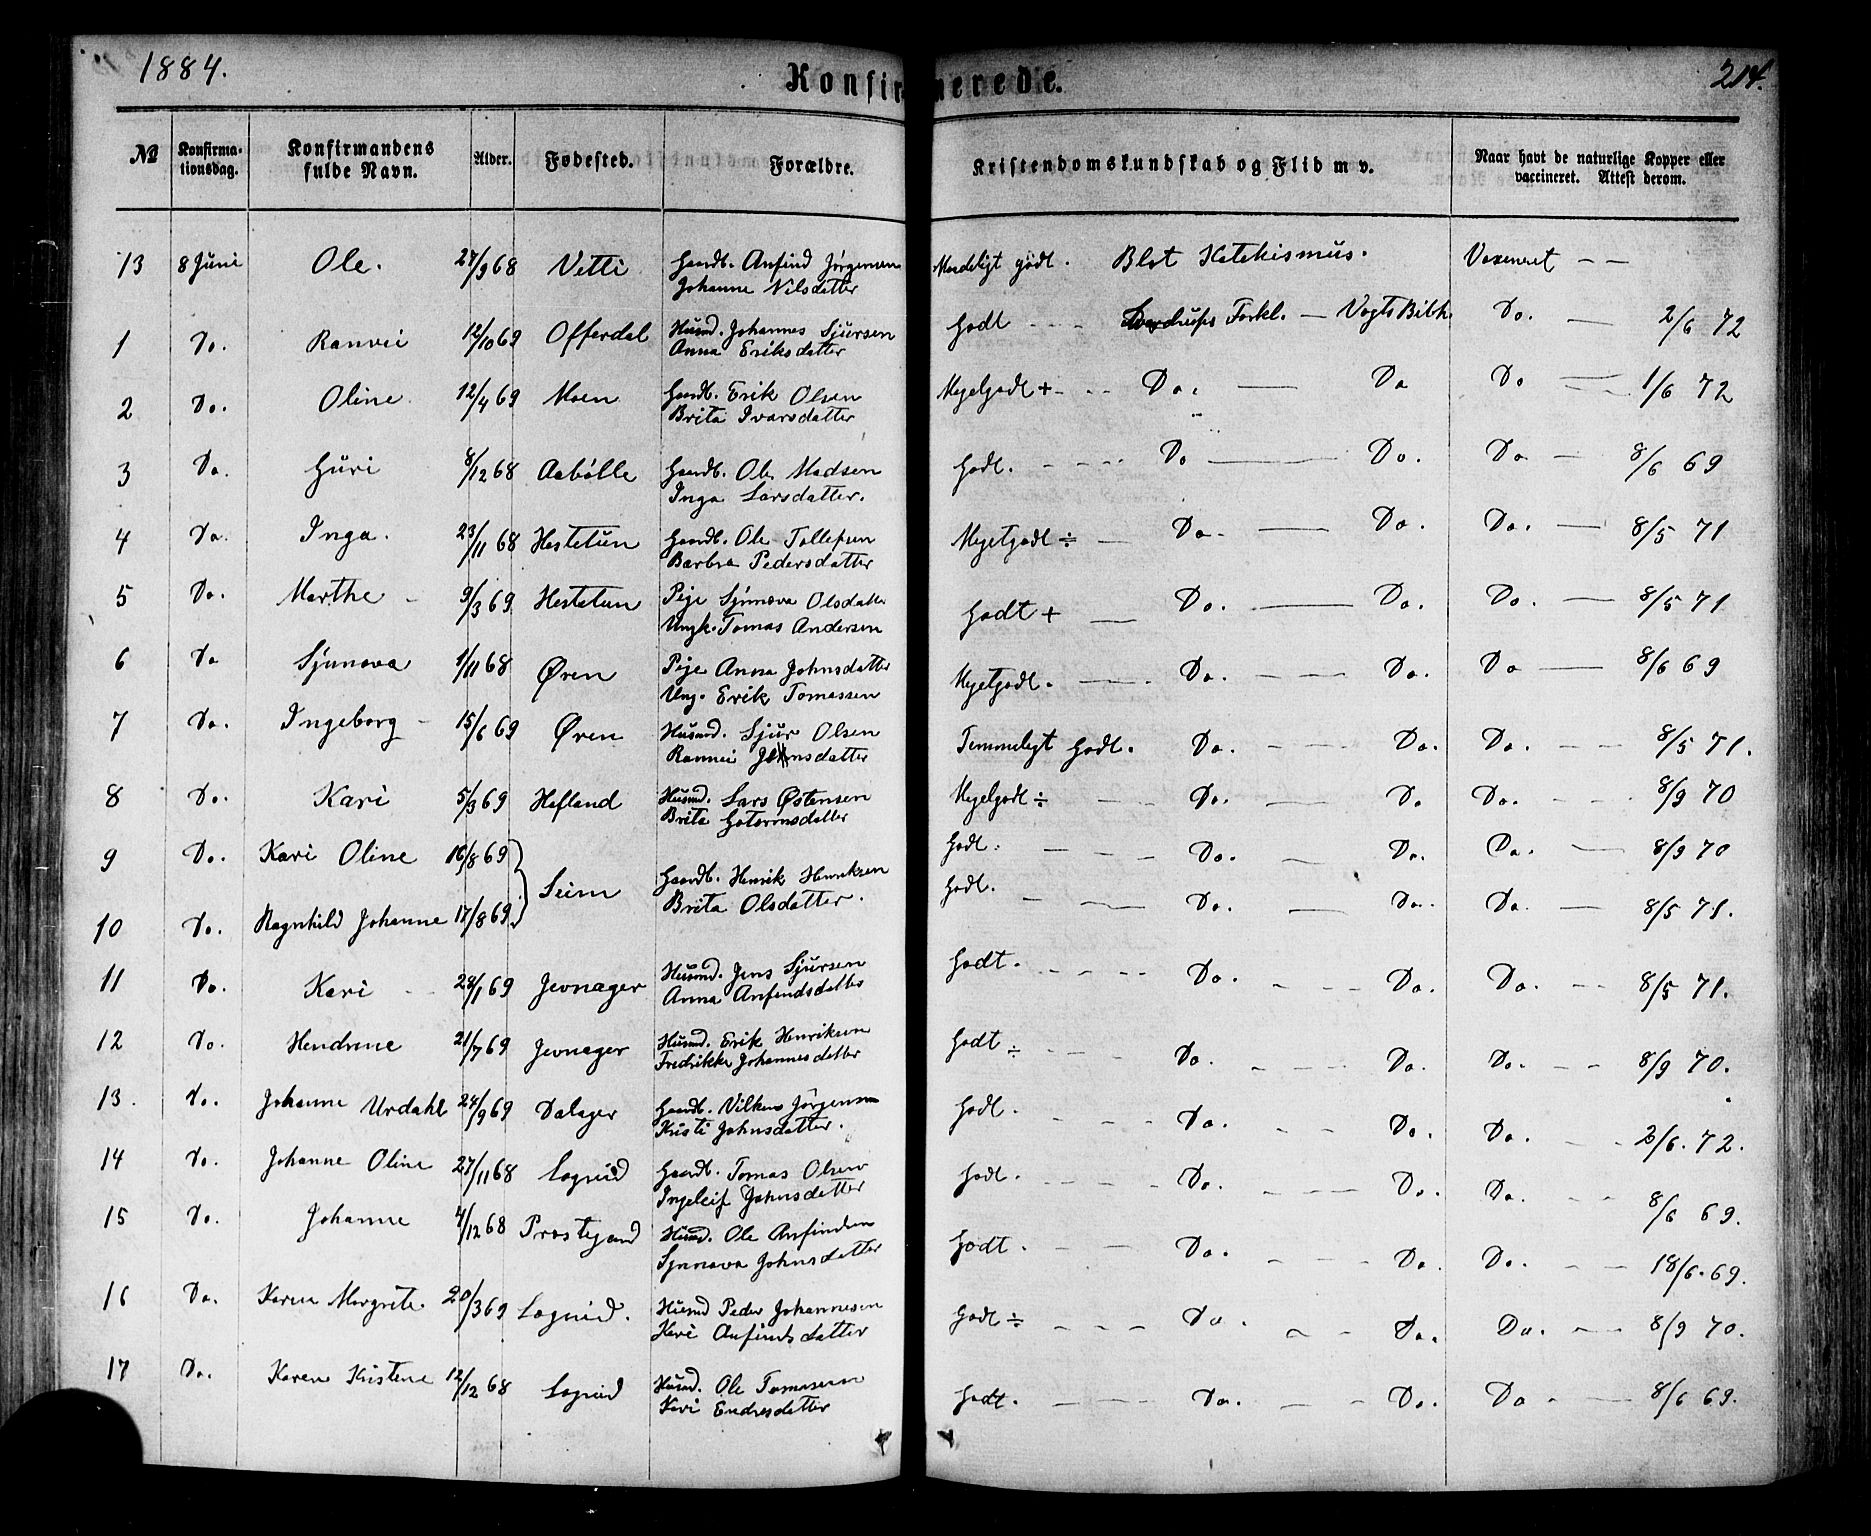 1884.
Konfirmerede.
214.
№ Konfirma-tionsdag. Konfirmandens fulde Navn. Alder. Fødested. Forældre. Kristendomskundskab og Flid m v. Naar havt de naturlige Kopper eller vaccineret. Attest derom.
13 8 Juni Ole. 27/9 68 Vetti Gaardb. Anfind Jørgensen
Johanne Nilsdatter Maadeligt godt. Blot Katekismus. Vaxeneret — —
1 Do. Ranvei 12/10 69 Offerdal Husmd. Johannes Sjursen
Anna Eriksdatter Godt - - - Sverdrups Forkl. — Vogts Bibh. Do. — 2/6 72
2 Do. Oline 12/4 69 Moen Gaardb. Erik Olsen
Brita Ivarsdatter Megetgodt + - - - Do. — Do Do — 1/6 72
3 Do. Guri 8/12 68 Aabölle Gaardb. Ole Madsen
Inga Larsdatter. Godt. - - - - Do — Do. Do — 8/6 69
4 Do. Inga. 23/11 68 Hestetun Gaardb. Ole Tollefsen
Barbra Pedersdatter Megetgodt ÷ — Do. — Do. Do. — 8/5 71
5 Do. Marthe - 9/3 69 Hestetun Pige Synnøva Olsdatter
Ungk. Tomas Andersen Godt + — Do. — Do. Do. — 8/5 71
6 Do Synnøva 1/11 68 Øren Pige Anna Johnsdatter
Ung. Erik Tomassen Megetgodt. - - - Do. - - - Do. Do — 8/6 69
7 Do. Ingeborg - 15/6 69 Øren Husmd. Sjur Olsen
Rannei Johnsdatter Temmeligt Godt. Do. - - - Do. Do. - - 8/5 71.
8 Do. Kari 5/3 69 Hefland Husmd. Lars Østensen
Brita Gotormsdatter Megetgodt ÷ - - - Do. - - - Do Do. - - - 8/9 70
9 Do. Kari Oline 16/8 69 } Seim Gaardb. Henrik Henriksen
Brita Olsdatter. Godt. - - - - Do. — Do. Do. — 8/9 70
10 Do. Ragnhild Johanne 17/8 69 Godt. - - - Do. — Do. Do. — 8/5 71.
11 Do. Kari - - 28/1 69 Jevnager Husmd. Jens Sjursen
Anna Anfindsdatter Godt. - - - - Do. - - - Do. Do. - - 8/5 71.
12 Do. Hendrine 21/7 69 Jevnager Husmd. Erik Henriksen
Fredrikke Johannesdatter Godt ÷ - - - Do. - - - Do. Do. - - 8/9 70.
13. Do. Johanne Urdahl 24/9 69 Dalager Gaardb. Vilken Jørgensen
Kristi Johnsdatter. Godt. - - - Do. - - Do. Do. - - 2/6. 72.
14 Do. Johanne Oline 27/11 68 Lognid Gaardb. Tomas Olsen
Ingeleif Johnsdatter Godt. - - - - Do. - - - Do. Do. - - 8/6 69.
15 Do. Johanne 4/12 68 Prestegaard Husmd. Ole Anfindsen
Synnøva Johnsdatter Godt. - - - Do. - - - Do. Do. - - 18/6. 69.
16 Do. Karen Margrete. 20/3 69 Lognid. Husmd Peder Johannesen
Kari Anfindsdatter Godt ÷ - - - Do. - - Do. Do. - - 8/9 70.
17 Do. Karen Kristene 12/12 68 Lognid Husmd. Ole Tomasen
Kari Endresdatter Godt. - - - Do. - - Do. Do - — 8/6 69.